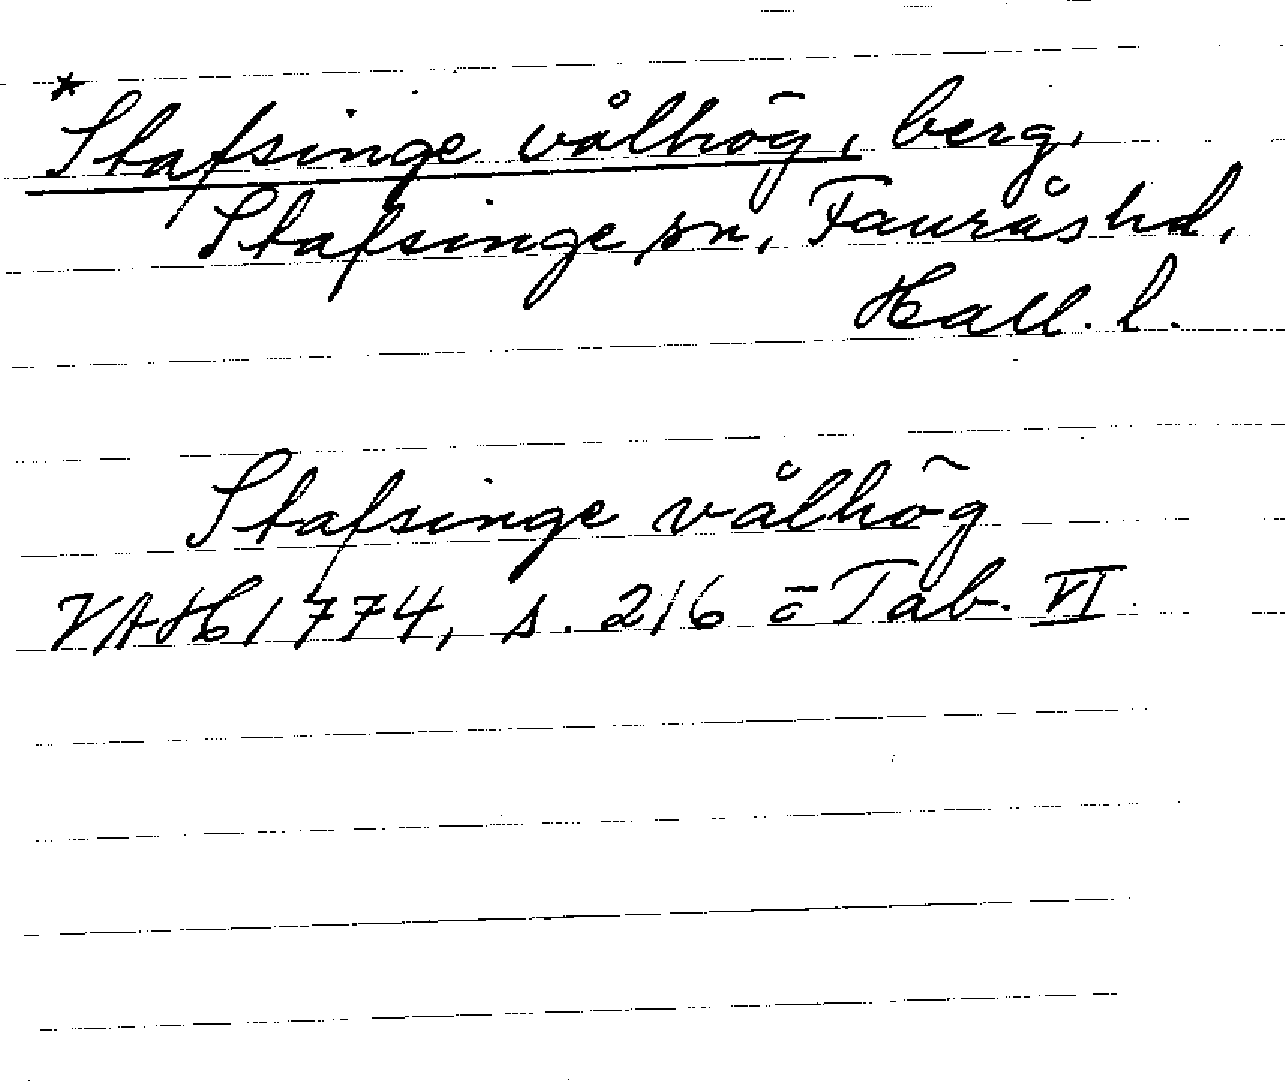 *Stafsinge vålhög, berg,
Stafsinge sn, Faurås hd,
Hall. l.
Stafsinge vålhög
VAH 1774, s. 216 o Tab. VI